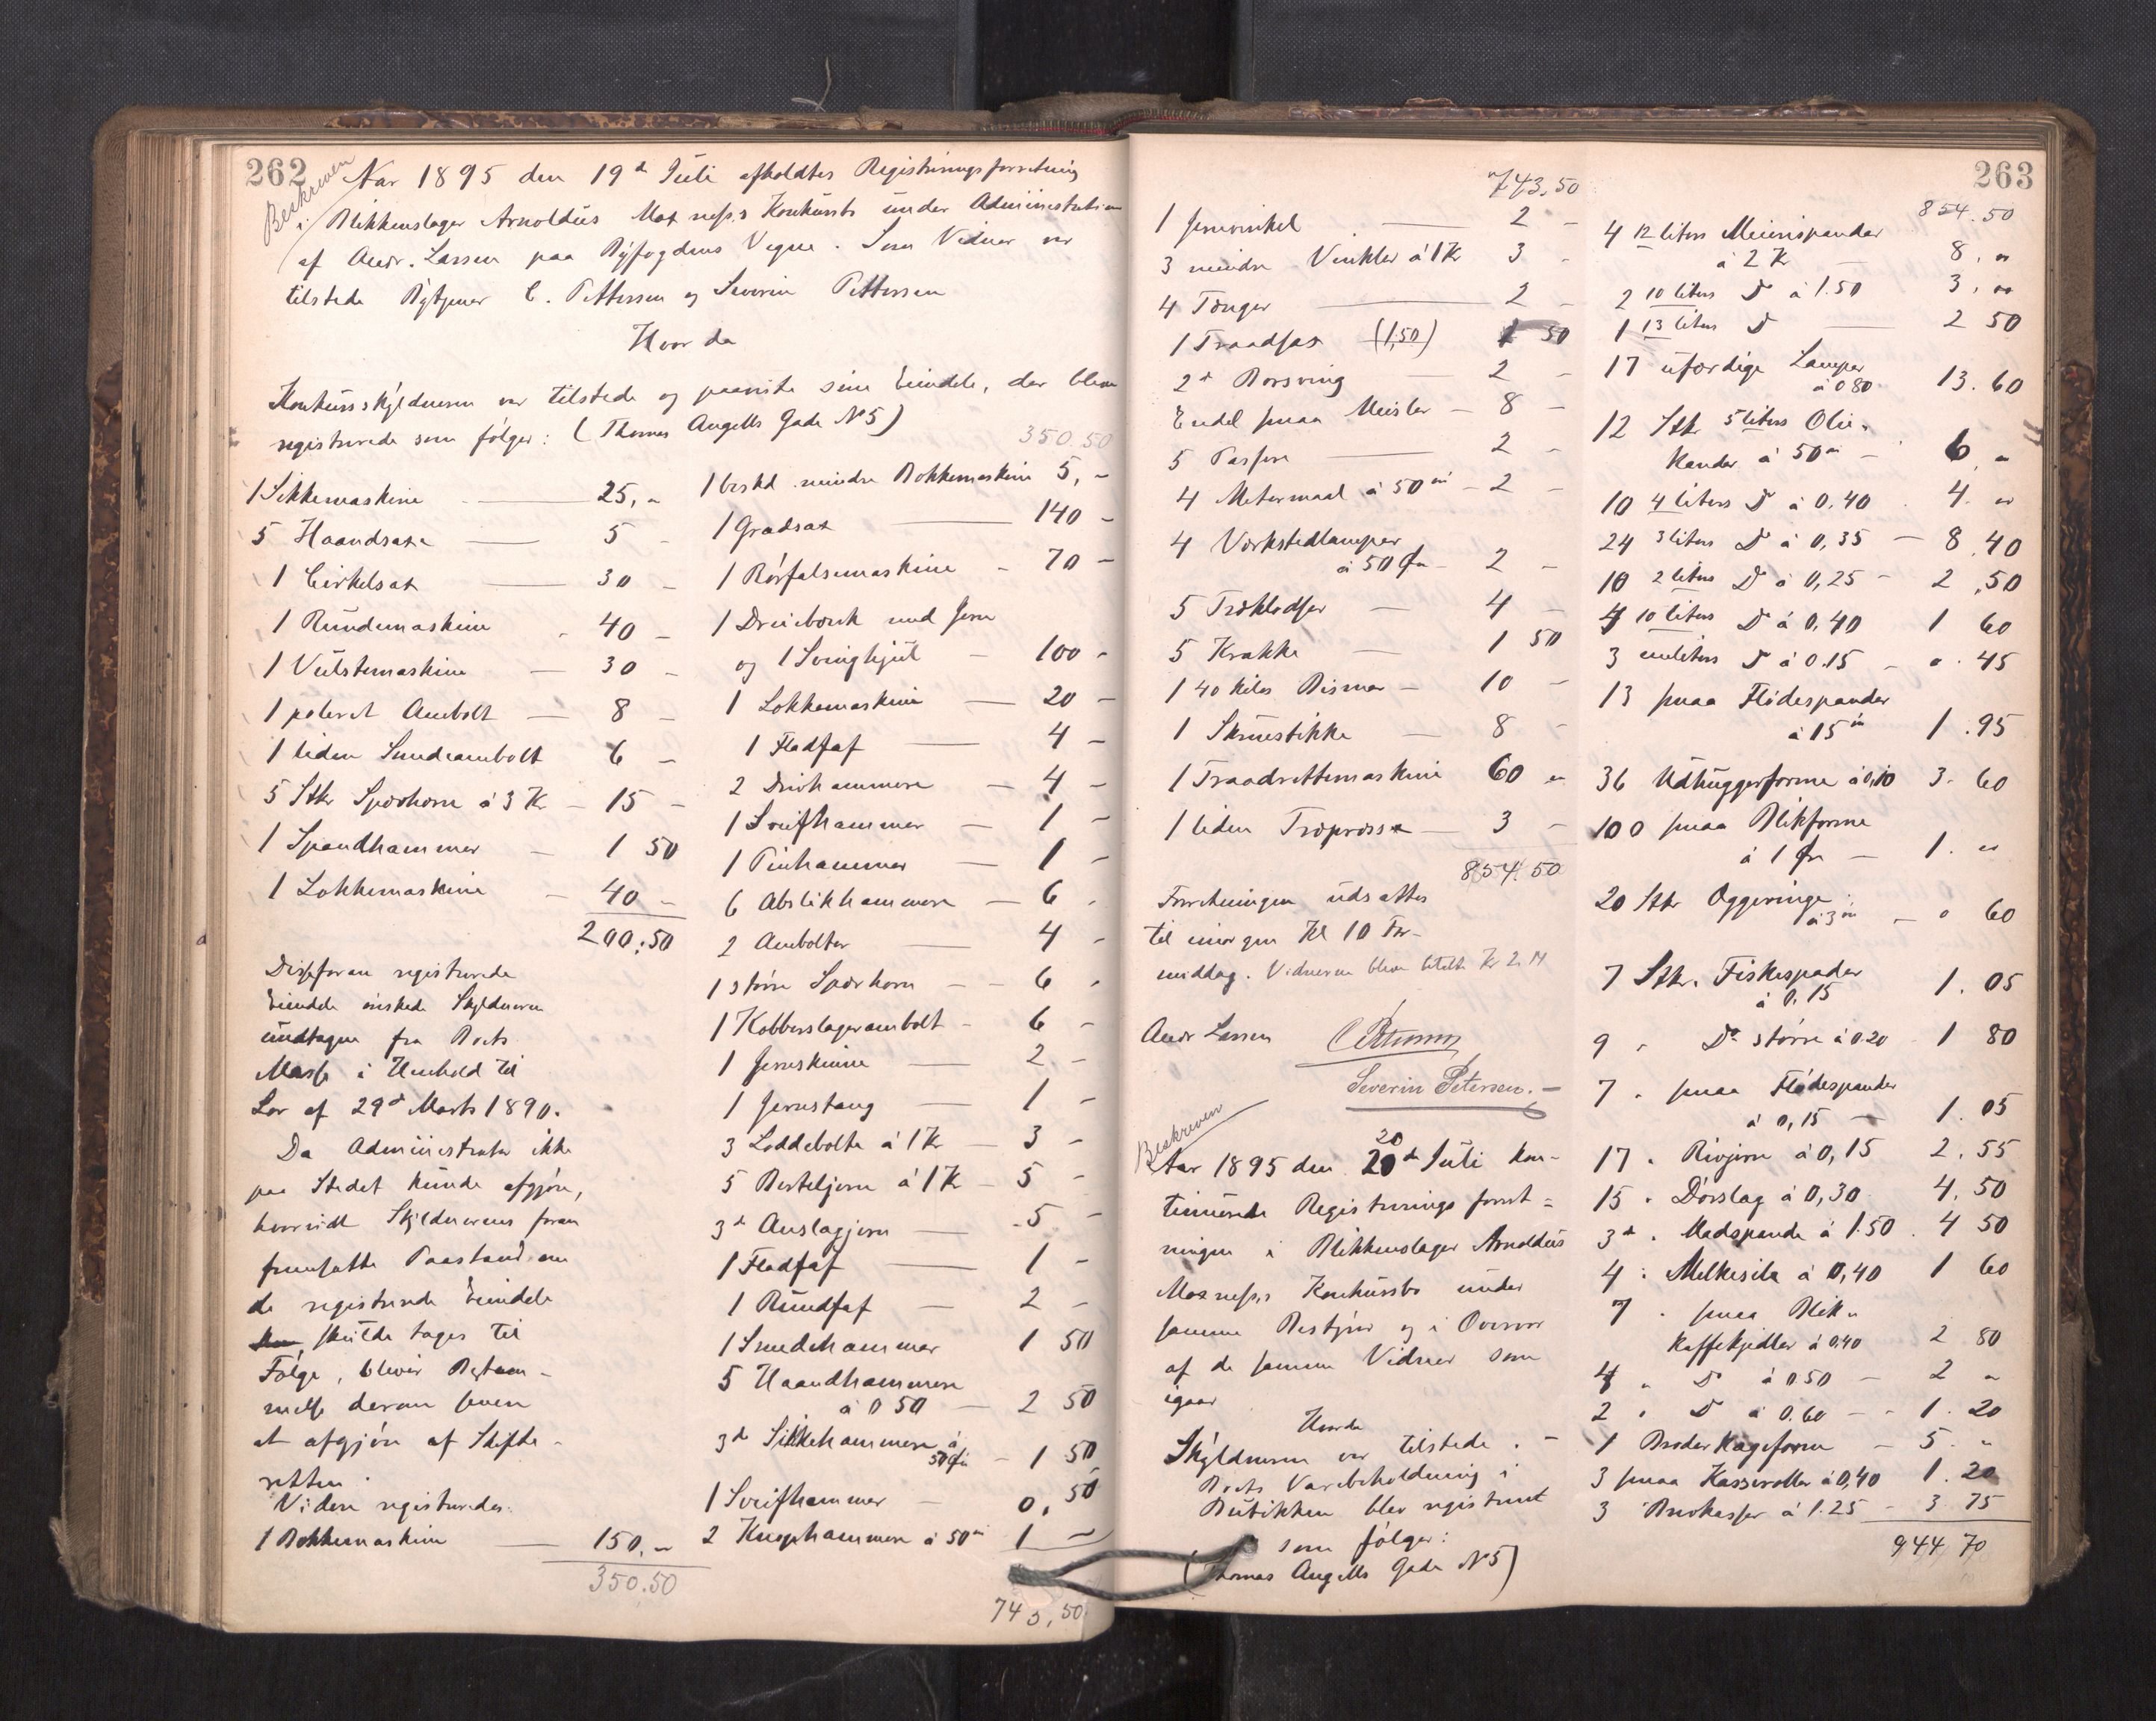 262
Beskreven
Aar 1895 den 19d Juli afholdtes Registreringsforretning
i Blikkenslager Arnoldus Moxness's Konkursbo under Administration
af Andr. Larsen paa Byfogdens Vegne. Som Vidner var
tilstede Bytjener C. Pettersen og Severin Pettersen
Hvorda
Konkursskyldneren var tilstede og paaviste sine Eiendele, der bleve
registrerede som følger: (Thomas Angells Gade No 5)
1 Sikkemaskine 25,-
5 Haandsaxe 5 -
1 Cirkelsax 30 -
1 Rundemaskine 40 -
1 Vulstemaskine 30 -
1 poleret Ambolt 8 -
1 liden Smedeambolt 6 -
5 Stkr Sparhorn á 3 Kr 15 -
1 Spandhammer 1 50
1 Lokkemaskine 40 -
200.50
Disseforan registrerede
Eiendele ønskede Skyldneren
undtagne fra Boets
Masse i Henhold til
Lov af 29d Marts 1890.
Da Administrator ikke
paa Stedet kunde afgjøre,
hvorvidt Skyldnerens foran
fremsatte Paastand om
de registrerede Eiendele
skulde tages til
Følge, bliver Bestem-
melse derom senere
at afgjøre af Skifte-
retten.
Videre registreredes:
1 Bokkemaskine 150.-
350.50
350.50
1 beskd. mindre Bokkemaskine 5,-
1 Gradsax 140 -
1 Rørfalsemaskine 70 -
1 Dreiebænk med Jern
og 1 Svinghjul 100 -
1 Lokkemaskine 20 -
1 Fladfaf 4 -
2 Drivhammere 4 -
1 Sveifhammer 1 -
1 Pinhammer 1 -
6 Abslikhammere 6 -
2 Ambolter 4 -
1 større Sparhorn 6 -
1 Kobberslagerambolt 6 -
1 Jernskinne 2 -
1 Jernstang 1 -
3 Loddebolte á 1 Kr 3 -
5 Berteljern á 1 Kr 5 -
3d Anslagjern 5 -
1 Fladfaf 1 -
1 Rundfaf 2 -
1 Smedehammer 1 50
5 Haandhammere
á 0 50 2 50
3d Sikkehammere á
50 Øre 1 50
1 Sveifhammer 0,50
2 Knophammere á 50 1 -
743,50
263
743,50
1 Jernvinkel 2 -
3 mindre Vinkler á 1 Kr 3 -
4 Tænger 2 -
1 Traadsax (1,50) 1 50
2d Borsving 2 -
Endel smaa Meisler 8 -
5 Passere 2 -
4 Metermaal á 50 2 -
4 Værkstedlamper
á 50 Øre 2 -
5 Træklodser 4 -
5 Krakke 1 50
1 40 kilos Bismer 10 -
1 Skruestikke 8 -
1 Traadrettemaskine 60 -
1 liden Træpresse 3 -
854.50
Forretningen udsattes
til imorgen Kl 10 For-
middag. Vidnerne blev betalt Kr 2.14
Andr Larsen C Pettersen
Severin Petersen.
Beskreven
Aar 1895 den 20d Juli kon-
tinuerede Registrerings forret-
ningen i Blikkenslager Arnoldus
Moxness,s Konkursbo under
samme Bestyrer og i Overvær
af de samme Vidner som
igaar
Hvorda
Skyldneren var tilstede.
Boets Varebeholdning i
Butikken blev registreret
som følger:
(Thomas Angells Gade No 5)
854.50
4 12 liters Meierispander
á 2 Kr 8.-
2 10 liters Do á 1.50 3.-
1 13 liters Do 2 50
17 ufærdige Lamper
á 0 80 13.60
12 Stkr 5 liters Olie-
kander á 50 6.-
10 4 liters Do á 0.40 4.-
24 3 liters Do á 0,35 8.40
10 2 liters Do á 0,25 2.50
4 10 liters Do á 0,40 1 60
3 enliters Do á 0.15 - 45
13 smaa Flødespander
á 15 1.95
36 Udhuggerforme á 0,10 3.60
100 smaa Blikforme
á 1 Øre 1.-
20 Stkr Æggeringe
á 3 - 0 60
7 Stkr. Fiskespader
á 0,15 1.05
9 " Do større á 0.20 1 80
7 " smaa Flødespander
á 0,15 1.05
17 " Rivjern á 0,15 2.55
15 " Dørslag á 0,30 4.50
3d " Madspande á 1.50 4 50
4 " Melkesile á 0,40 1 60
7 " smaa Blik-
kaffekjedler á 0.40 2 80
4 " Do á 0 50 2 -
2 " Do á 0.60 1.20
1 Broder Kageform 5.-
3 smaa Kasseroller á 0,40 1.20
3 Brødkasser á 1.25 3 75
944 70